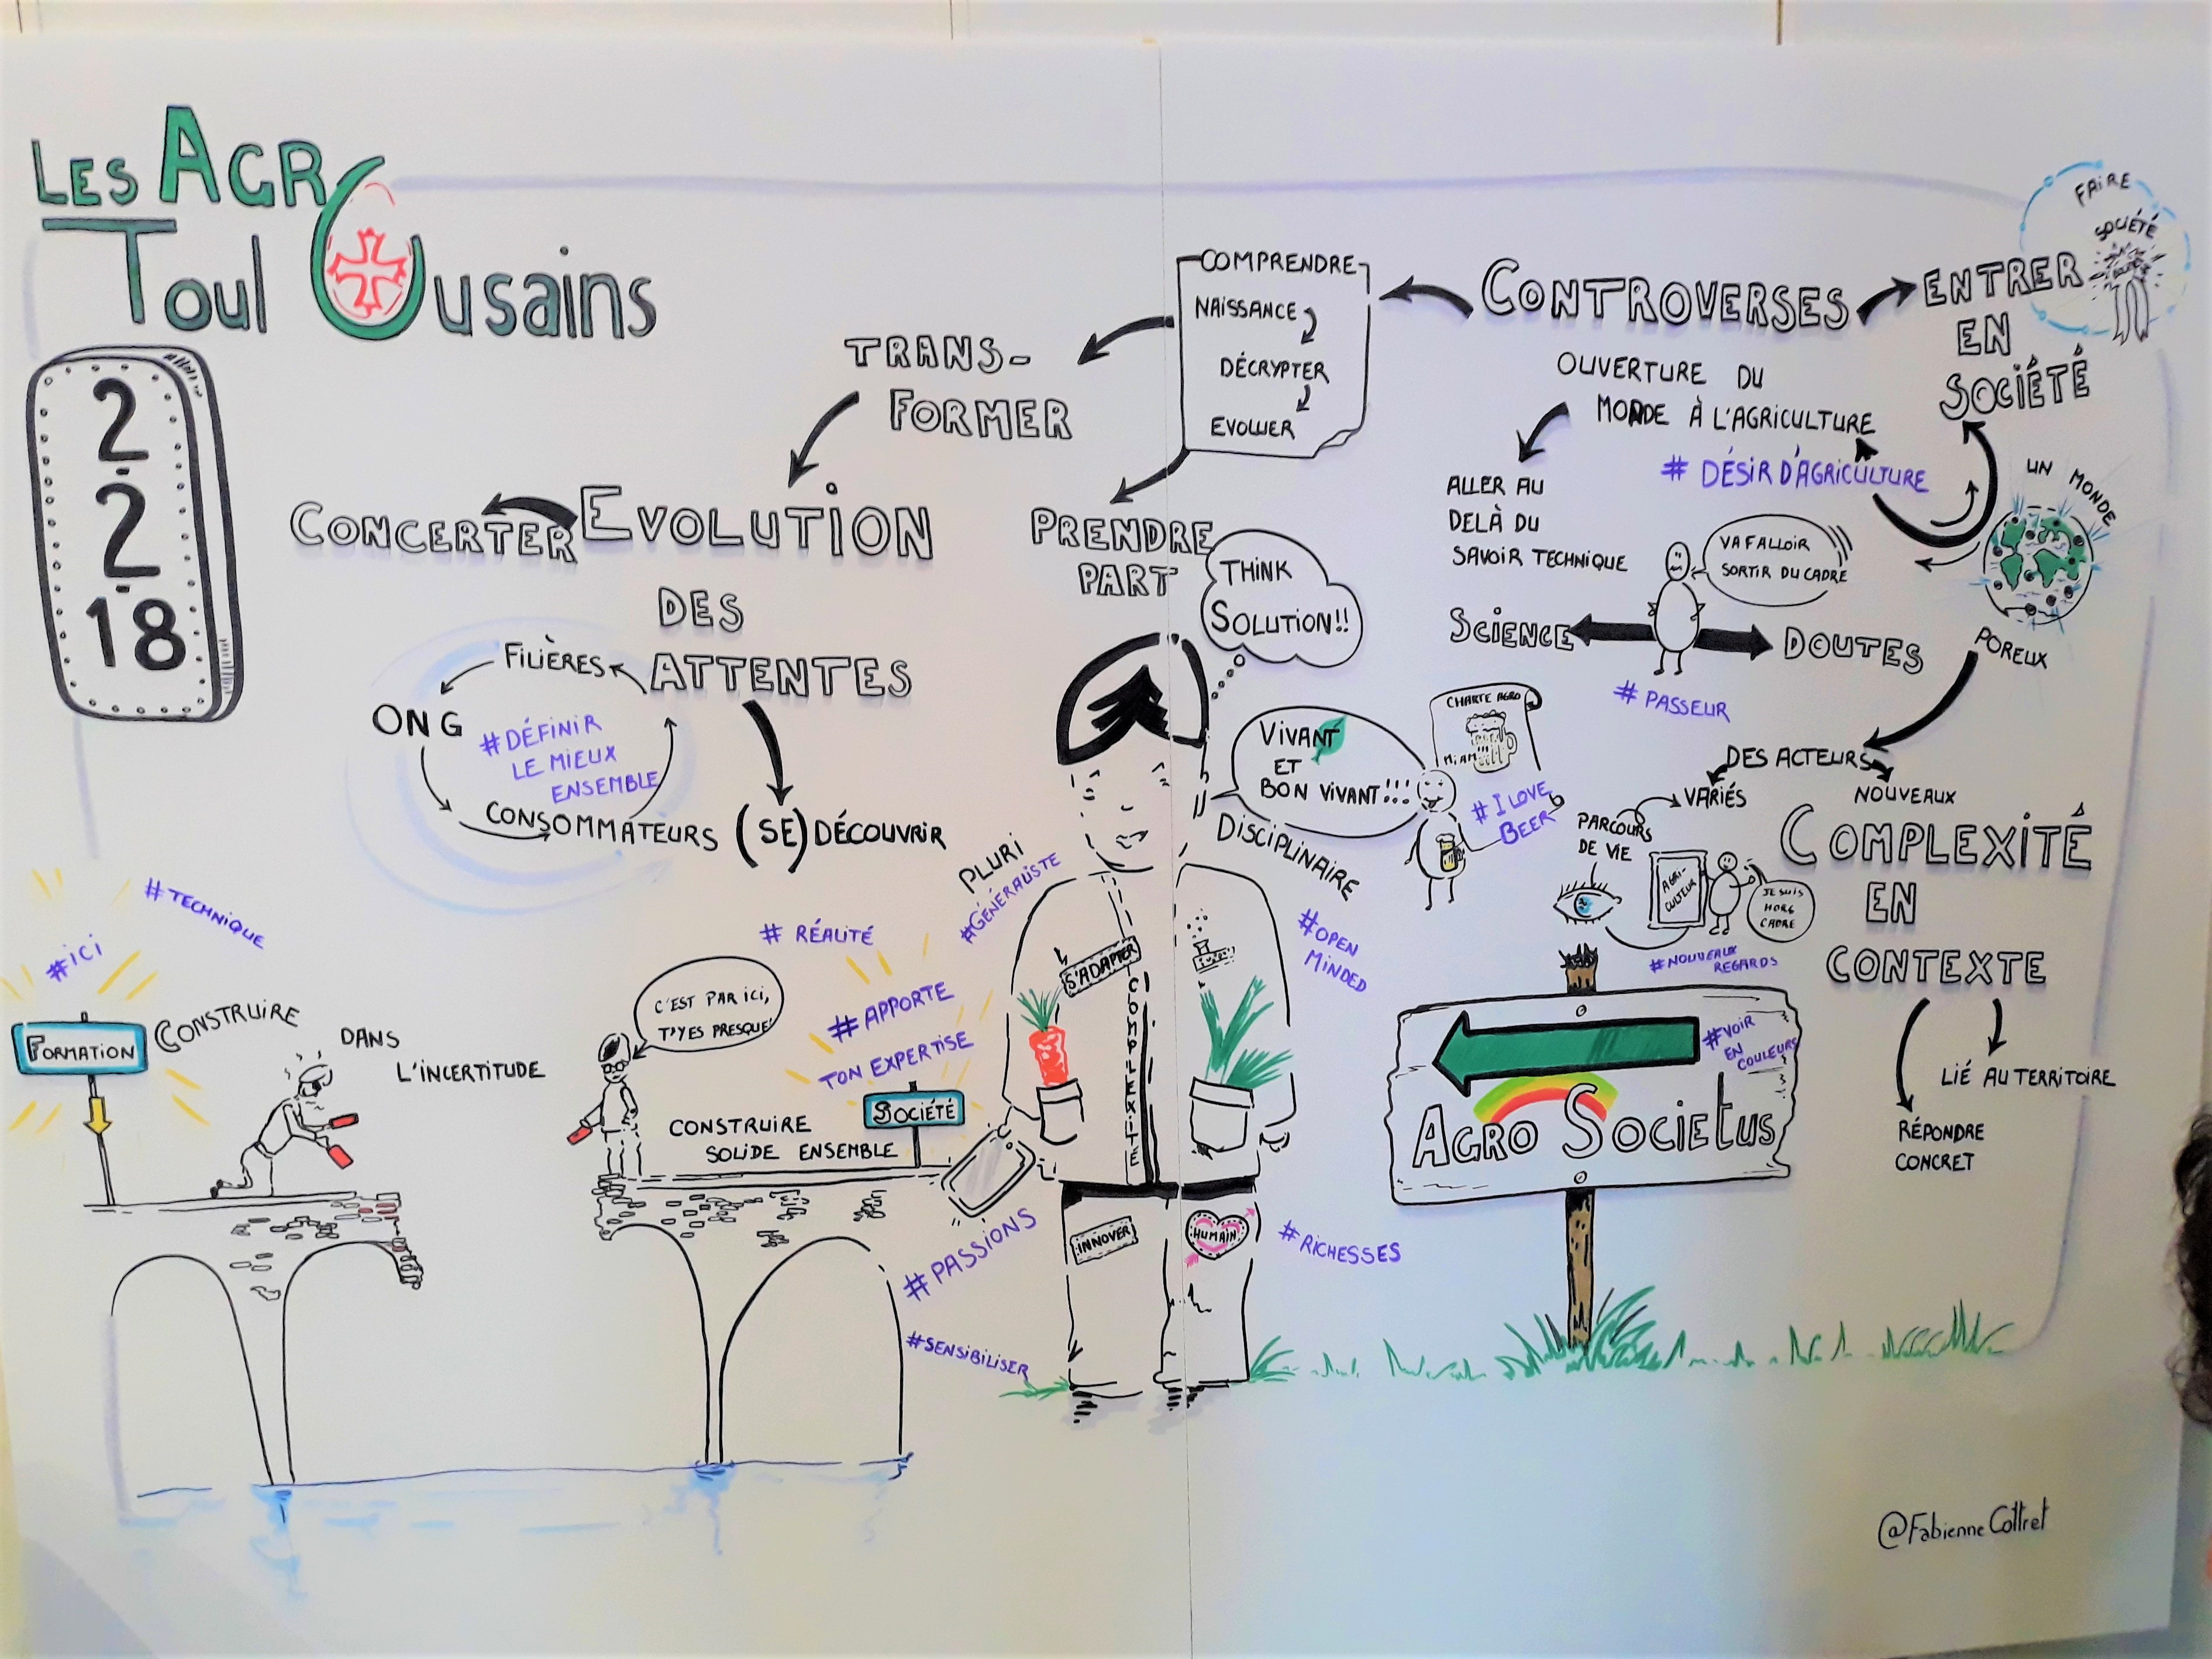 LES AGRO
TOULOUSAINS
2
-
2
-
18
FAIRE
SOCIÉTÉ
CONTROVERSES
ENTRER
EN
SOCIÉTÉ
COMPRENDRE
NAISSANCE
DÉCRYPTER
EVOLUER
TRANS-
FORMER
PRENDRE
PART
CONCERTER
EVOLUTION
DES
ATTENTES
FILIÈRES
ONG
CONSOMMATEURS
#DÉFINIR
LE MIEUX
ENSEMBLE
(SE) DÉCOUVRIR
OUVERTURE DU
MONDE À L'AGRICULTURE
# DÉSIR D'AGRICULTURE
ALLER AU
DELÀ DU
SAVOIR TECHNIQUE
VA FALLOIR
SORTIR DU CADRE
SCIENCE
DOUTES
# PASSEUR
UN MONDE
POREUX
DES ACTEURS
VARIÉS
NOUVEAUX
PARCOURS
DE VIE
AGRI-
CULTEUR
JE SUIS
HORS
CADRE
#NOUVEAUX
REGARDS
COMPLEXITÉ
EN
CONTEXTE
LIÉ AU TERRITOIRE
RÉPONDRE
CONCRET
THINK
SOLUTION!!
VIVANT
ET
BON VIVANT!!!
CHARTE AGRO
MIAM!!!
# I LOVE
BEER
PLURI
DISCIPLINAIRE
#GÉNÉRALISTE
#OPEN
MINDED
S'ADAPTER
COMPLEXITÉ
INNOVER
HUMAIN
#RICHESSES
#PASSIONS
#SENSIBILISER
#TECHNIQUE
#ICI
FORMATION
CONSTRUIRE DANS
L'INCERTITUDE
C'EST PAR ICI,
T'YES PRESQUE!
# RÉALITÉ
#APPORTE
TON EXPERTISE
SOCIÉTÉ
CONSTRUIRE
SOLIDE ENSEMBLE
#VOIR
EN
COULEURS
AGRO SOCIETUS
@Fabienne Cottret